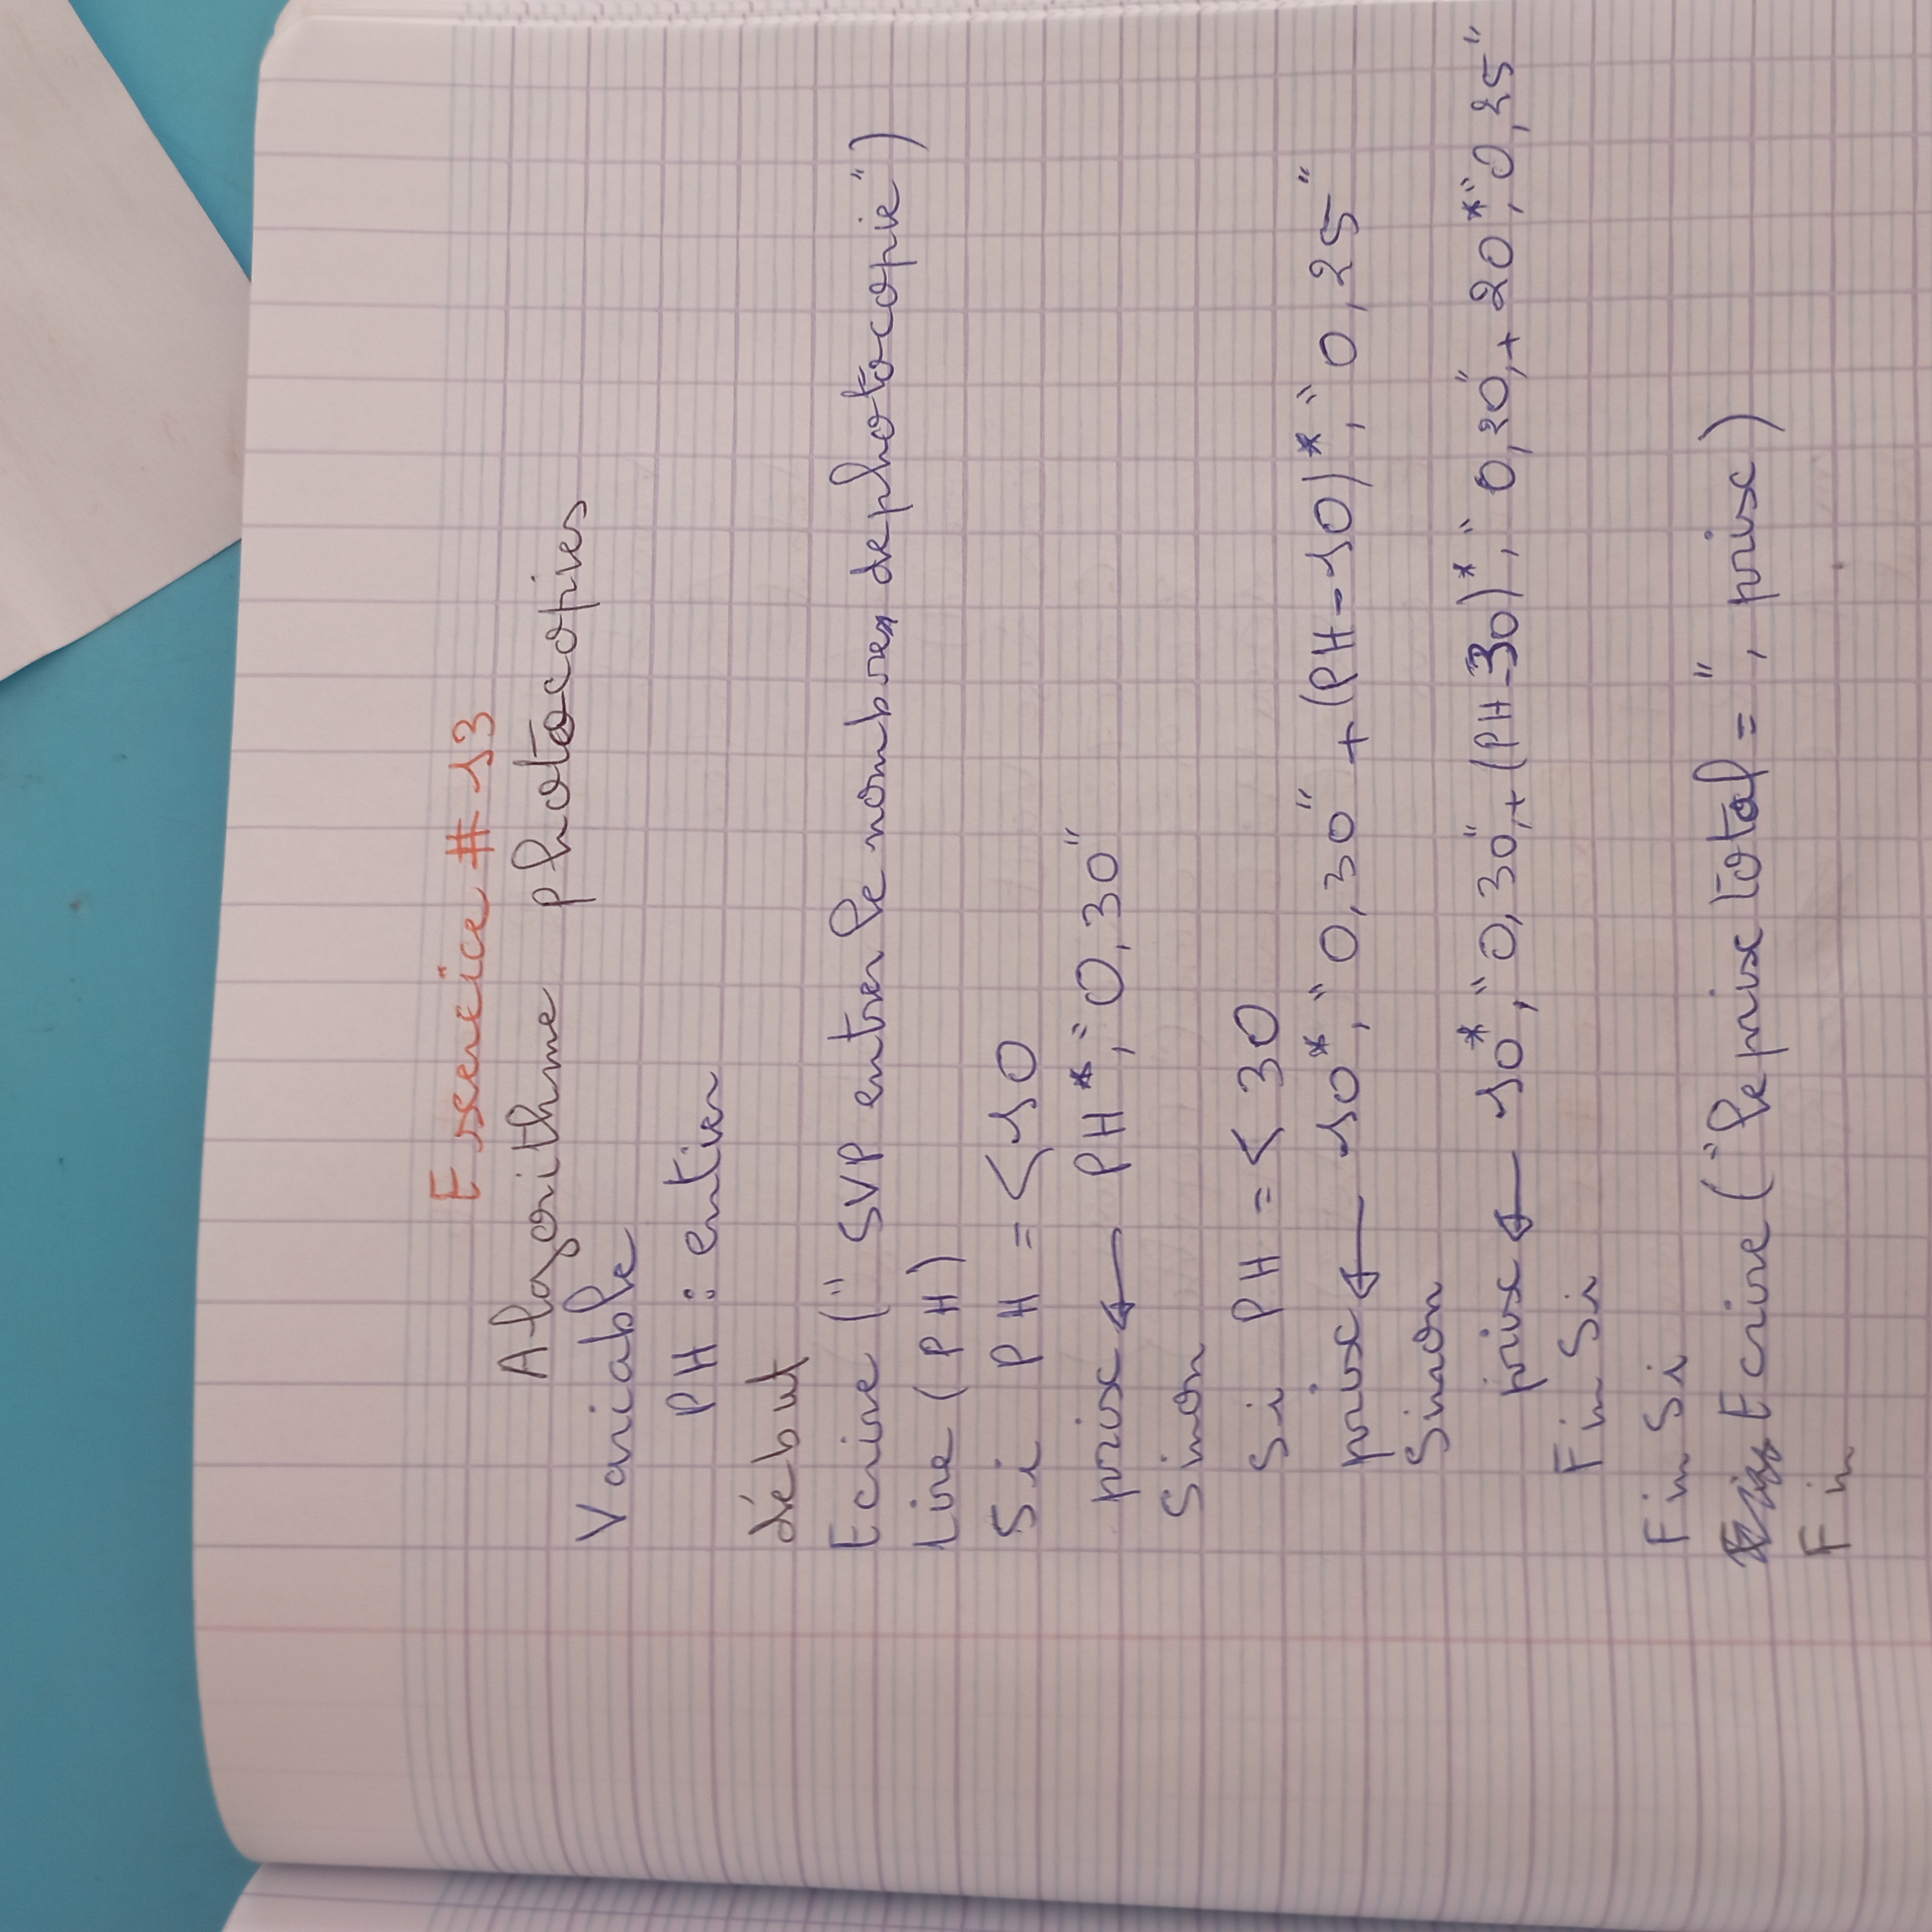 Exercice # 13
Algorithme photocopies
Variable
PH : entier
début
Ecrire (" SVP entrer le nombre de photocopie")
Lire (PH)
Si PH =< 10
prix ← PH*, "0,30"
Sinon
Si PH =< 30
prix ← 10*, "0,30" + (PH-10)*, "0,25"
Sinon
prix ← 10*, "0,30", + (PH-30)*, "0,20", + 20*, "0,25"
Fin Si
Fin Si
Ecrire ("le prix total = ", prix)
Fin